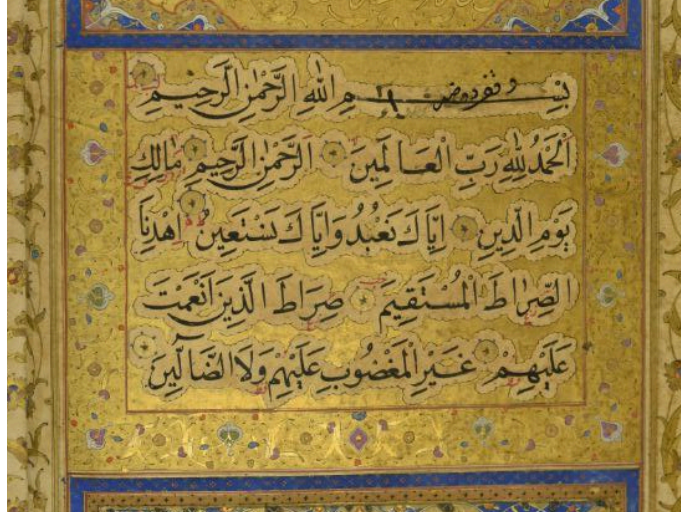 بِسْمِ اللهِ الرَّحْمٰنِ الرَّحِيْمِ
اَلْحَمْدُ لِلّٰهِ رَبِّ الْعَالَمِينَ الرَّحْمٰنِ الرَّحِيمِ مَالِكِ
يَوْمِ الدِّينِ اِيَّاكَ نَعْبُدُ وَاِيَّاكَ نَسْتَعِينُ اِهْدِنَا
الصِّرَاطَ الْمُسْتَقِيمَ صِرَاطَ الَّذِينَ اَنْعَمْتَ
عَلَيْهِمْ غَيْرِ الْمَغْضُوبِ عَلَيْهِمْ وَلَا الضَّالِّينَ